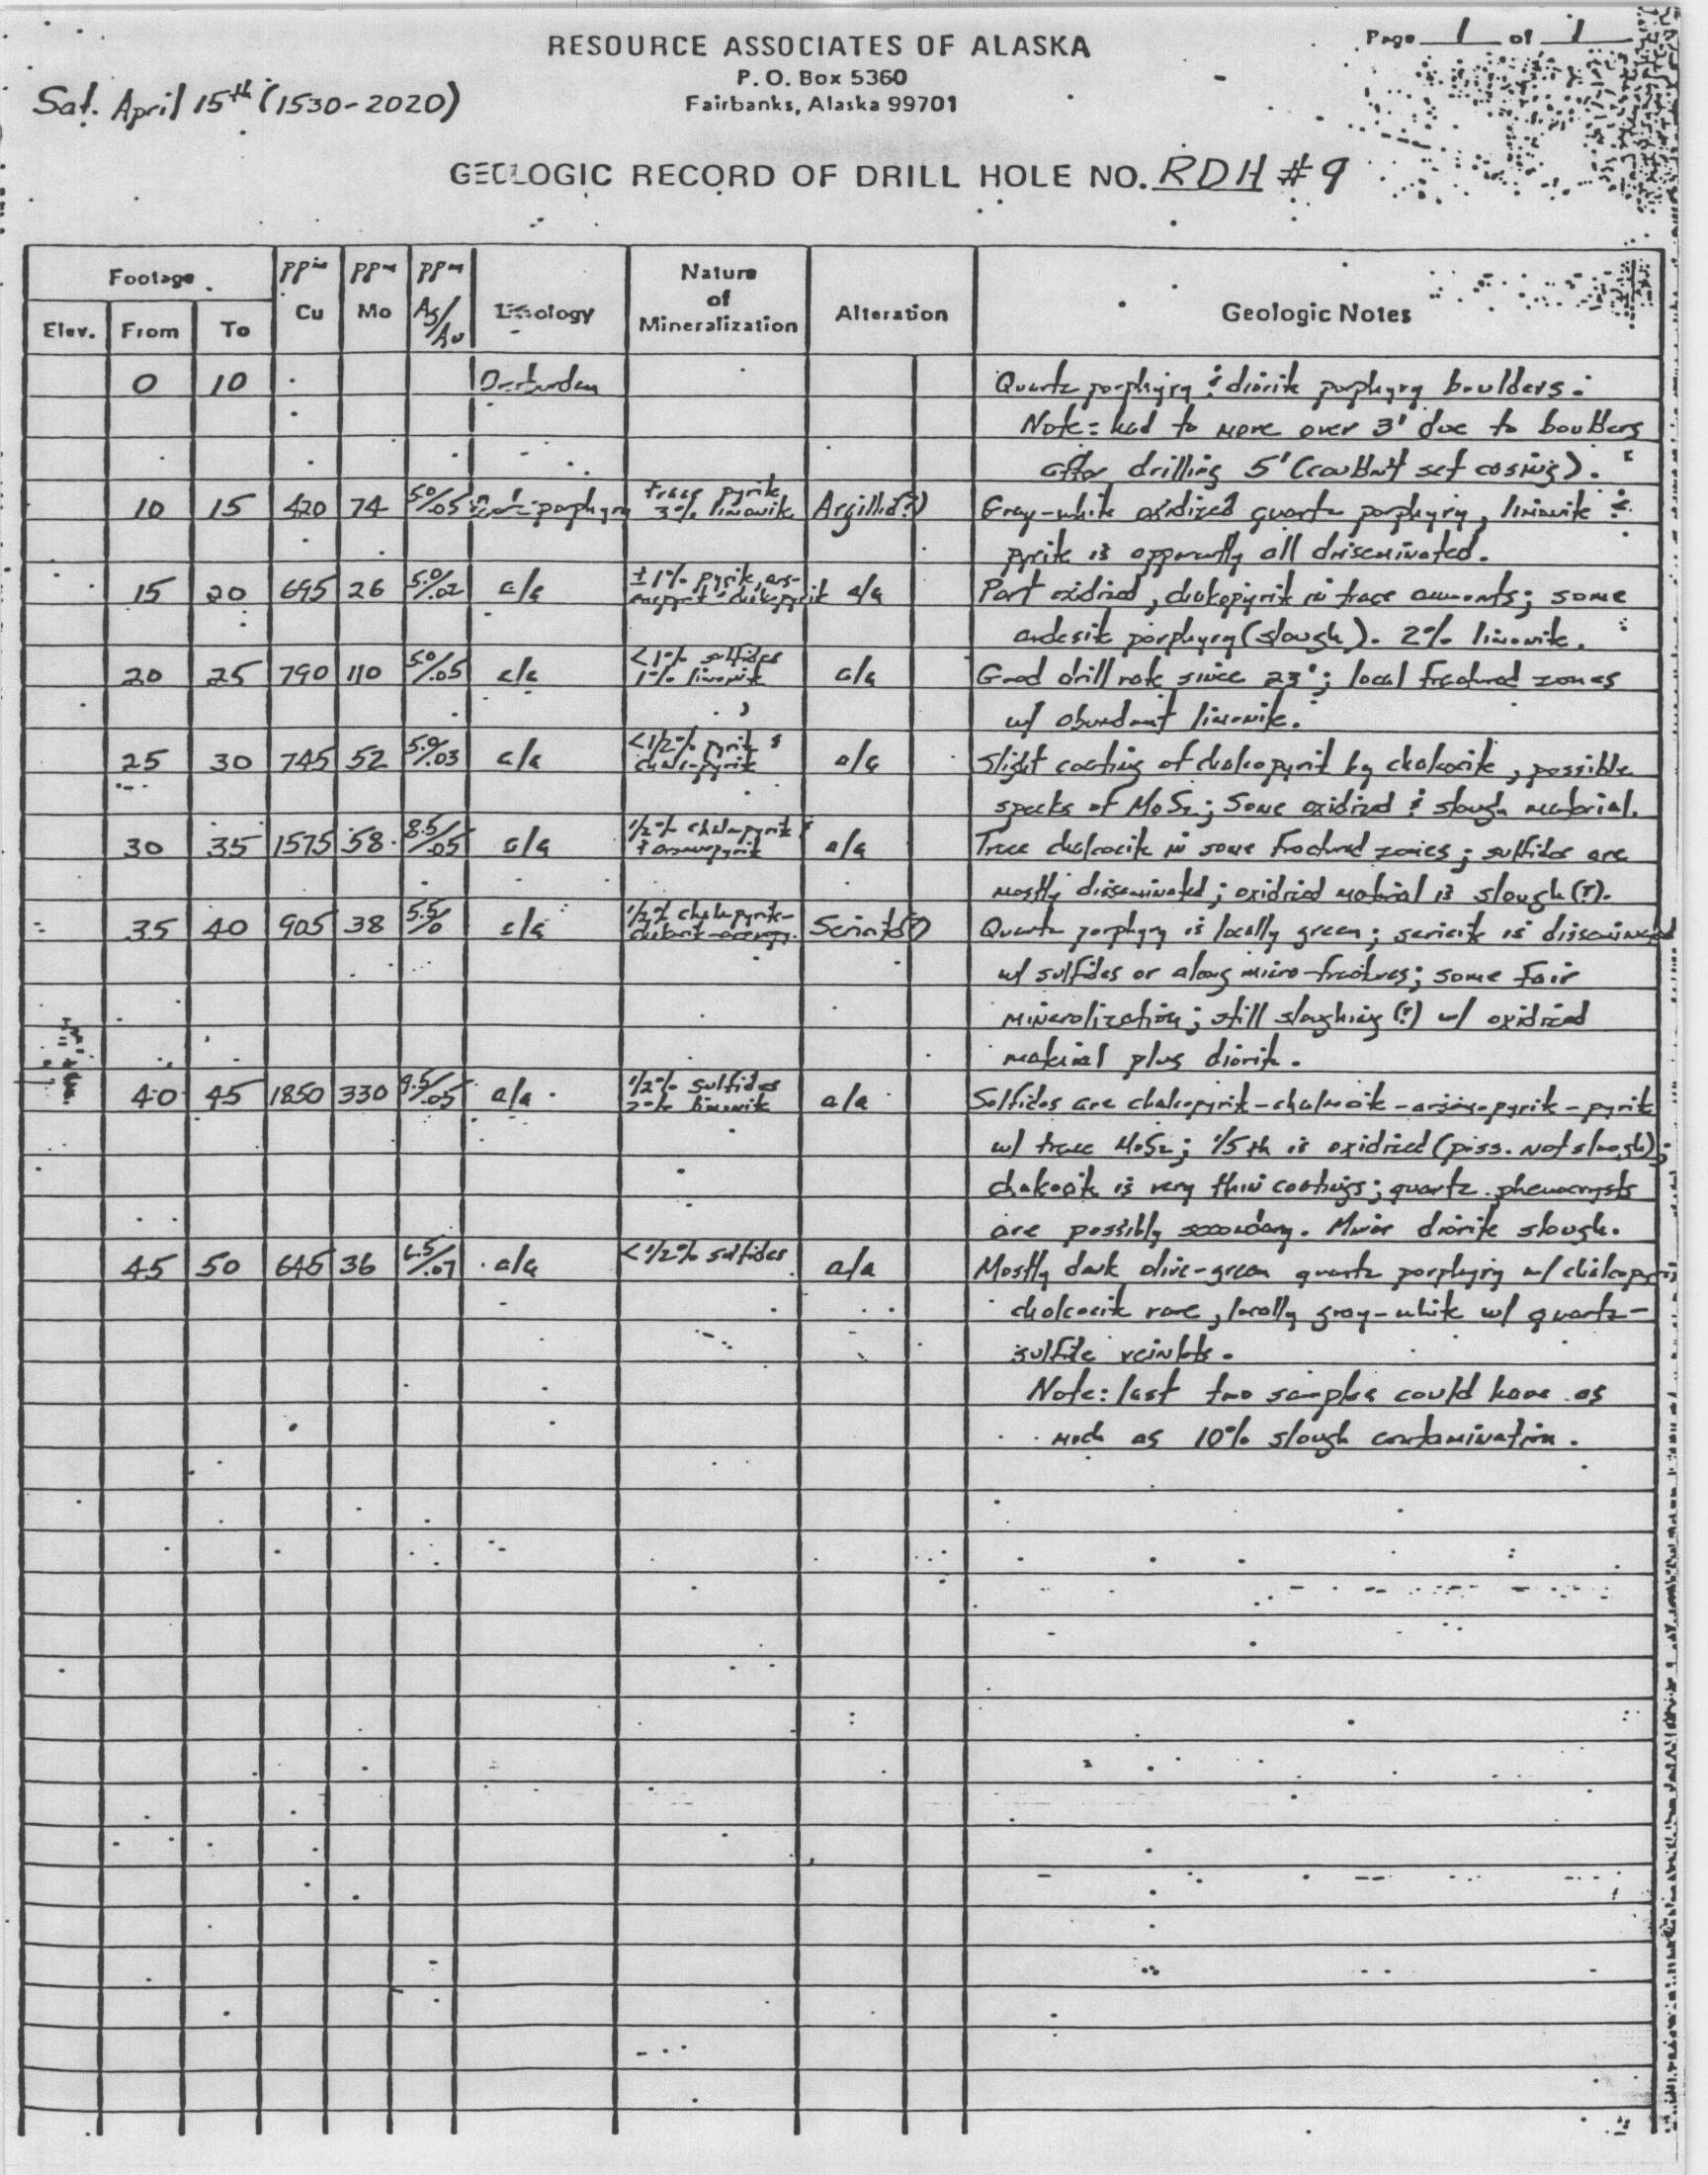 RESOURCE ASSOCIATES OF ALASKA
Page 1 of 1
P. O. Box 5360
Fairbanks, Alaska 99701
Sat. April 15th (1530-2020)
GEOLOGIC RECORD OF DRILL HOLE NO. RDH #9
Footage ppm ppm ppm Nature
of
Elev. From To Cu Mo Ag/Au Lithology Mineralization Alteration Geologic Notes
0 10 Overburden Quartz porphyry & diorite porphyry boulders.
Note: had to move over 3' due to boulders
after drilling 5' (couldn't set casing).
trace pyrite
10 15 420 74 5.0/.05 porphyry 3% limonite Argillic(?) Gray-white oxidized quartz porphyry, limonite &
pyrite is apparently all disseminated.
±1% pyrite, ars-
15 20 695 26 5.0/.02 a/a enopyrite-chalcopyrite a/a Part oxidized, chalcopyrite in trace amounts; some
andesite porphyry (slough). 2% limonite.
<1% sulfides
20 25 790 110 5.0/.05 a/a 1% limonite a/a Good drill rate since 23'; local fractured zones
w/ abundant limonite.
<1/2% pyrite &
25 30 745 52 5.0/.03 a/a chalcopyrite a/a Slight coating of chalcopyrite by chalcocite, possible
specks of MoS2; Some oxidized & slough material.
1/2% chalcopyrite
30 35 1575 58 8.5/.05 a/a ± arsenopyrite a/a Trace chalcocite in some fractured zones; sulfides are
mostly disseminated; oxidized material is slough (?).
1/2% chalcopyrite-
35 40 905 38 5.5/0 a/a Sericite(?) Quartz porphyry is locally green; sericite is disseminated
w/ sulfides or along micro-fractures; some fair
mineralization; still sloughing (?) w/ oxidized
material plus diorite.
1/2% sulfides
40 45 1850 330 9.5/.05 a/a 2% limonite a/a Sulfides are chalcopyrite-chalcocite-arsenopyrite-pyrite
w/ trace MoS2; 1/5th is oxidized (poss. not slough);
chalcocite is very thin coatings; quartz phenocrysts
are possibly secondary. Minor diorite slough.
45 50 645 36 6.5/.07 a/a <1/2% sulfides a/a Mostly dark olive-green quartz porphyry w/ chalcopyrite
chalcocite rare, locally gray-white w/ quartz-
sulfide veinlets.
Note: last two samples could have as
much as 10% slough contamination.